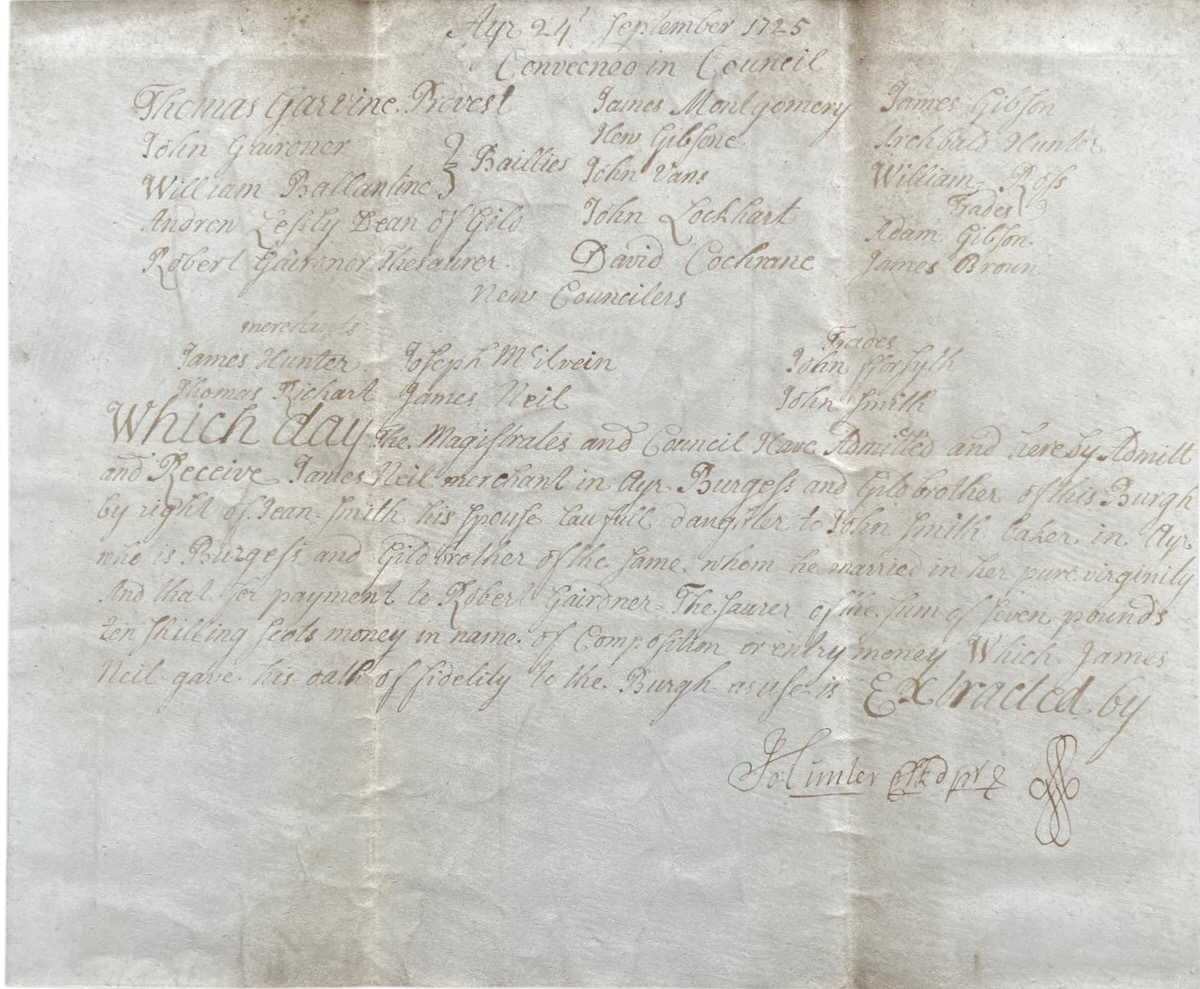 Ayr 24t September 1725
Conveened in Council
Thomas Garvine Provest James Montgomery James Gibson
John Gairdner Hew Gibsone Archbald Hunter
William Ballantine } Baillies John Vans William Ross
Andrew Lessly Dean of Gild John Lockhart Trades
Adam Gibson
Robert Gairdner Thesaurer David Cochrane James Broun
New Councilers
merchants Trades
James Hunter Joseph McIlvein John fforsyth
Thomas Richart James Neil John Smith
Which day The Magistrates and Council Have Admitted and hereby Admitt
and Receive James Neil merchant in Ayr Burgess and Gildbrother of this Burgh
by right of Jean Smith his spouse laufull daughter to John Smith baker in Ayr
who is Burgess and Gildbrother of the same whom he married in her pure virginity
And that for payment to Robert Gairdner Thesaurer of the sum of seven pounds
ten shilling scots money in name of Composition or entry money Which James
Neil gave his oath of fidelity to the Burgh as use is Extracted by
Jo Hunter